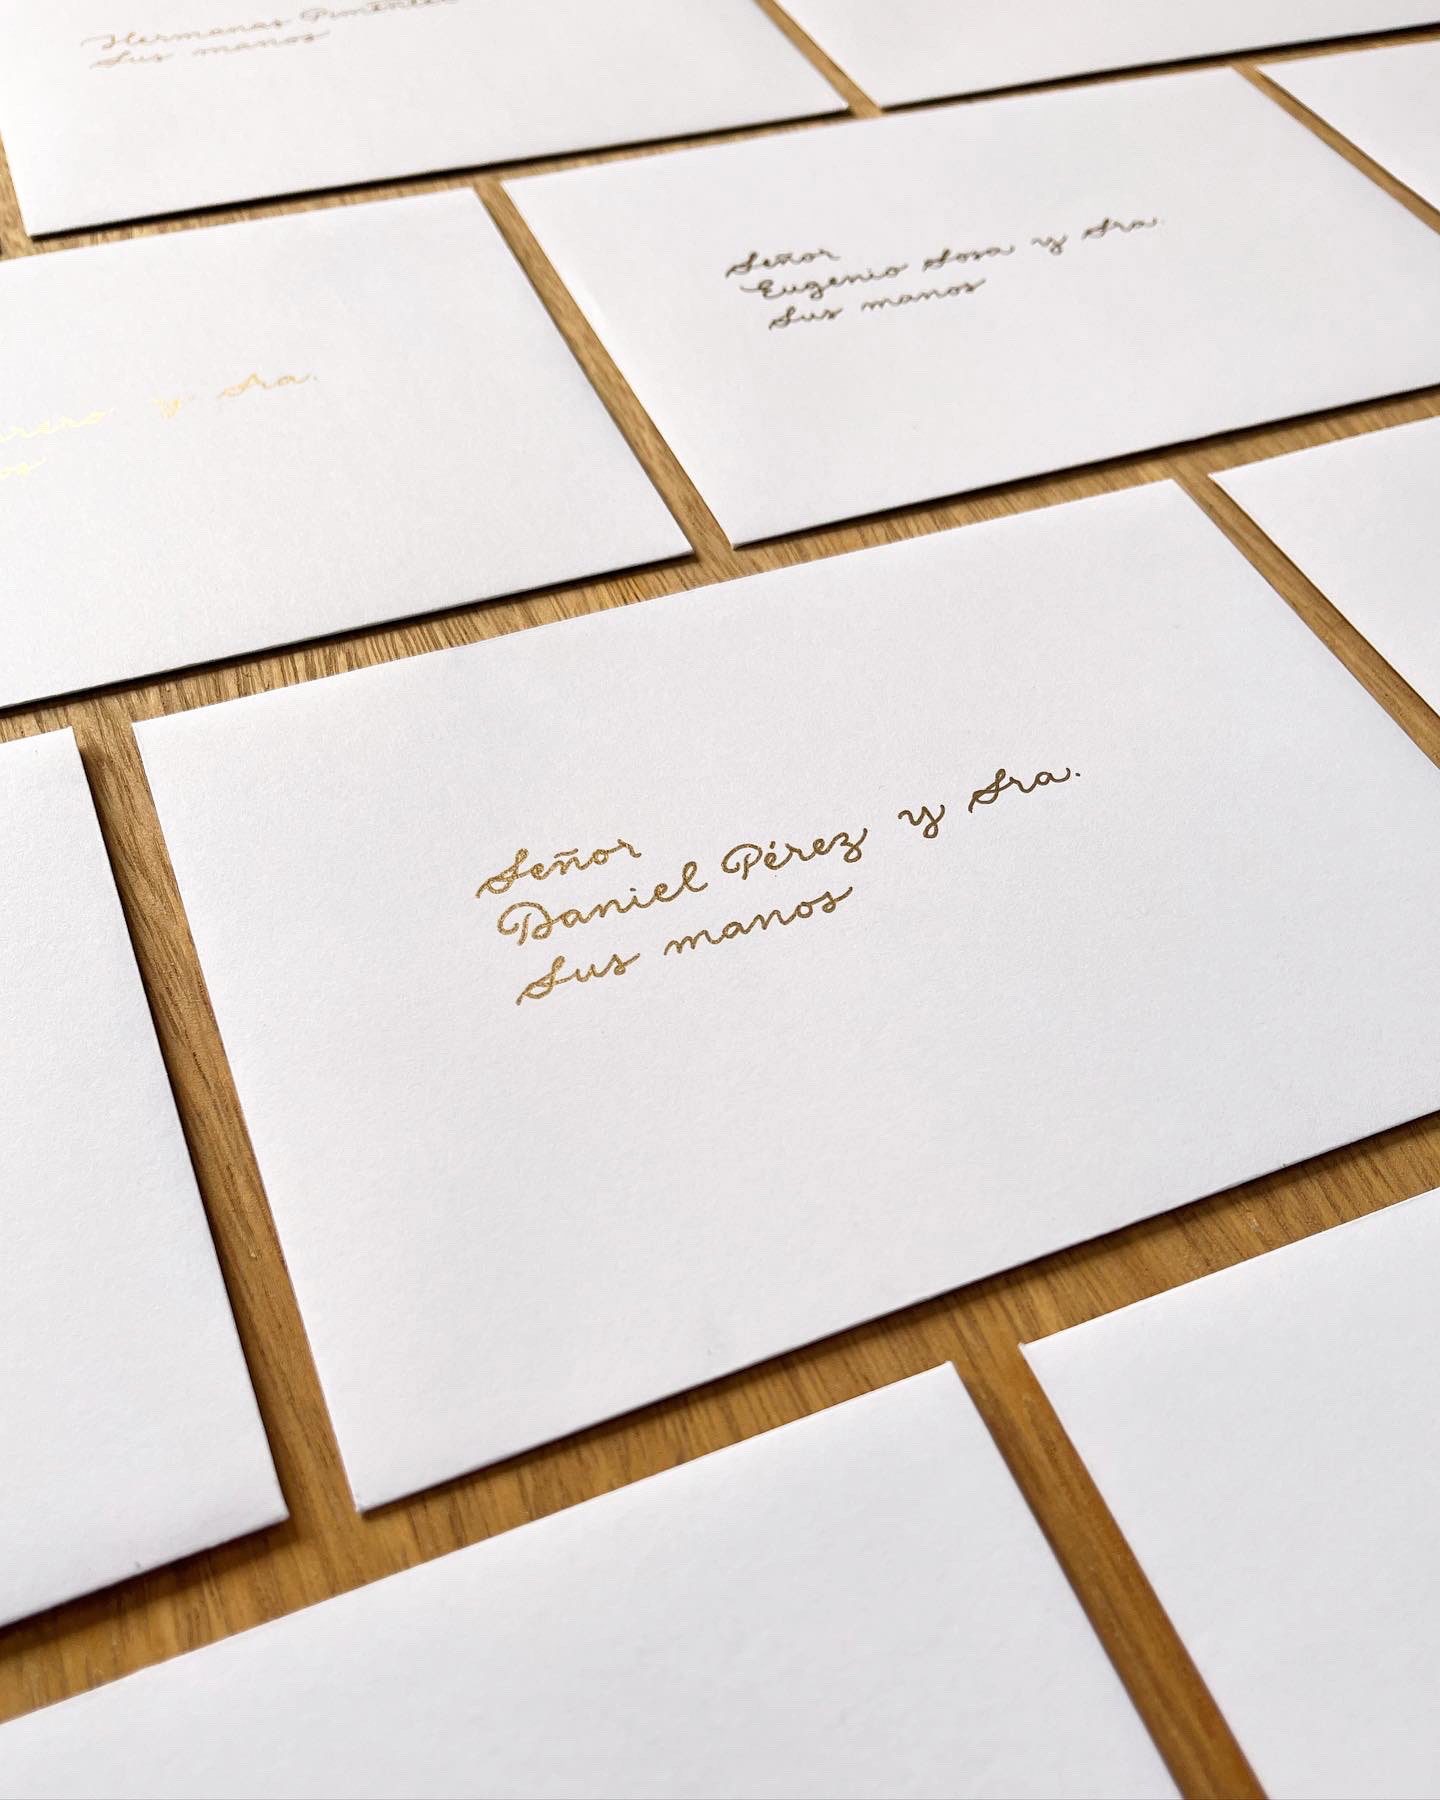 Hermanas Pimentel
Sus manos
Señor
Eugenio Sosa y Sra.
Sus manos
y Sra.
Señor
Daniel Pérez y Sra.
Sus manos